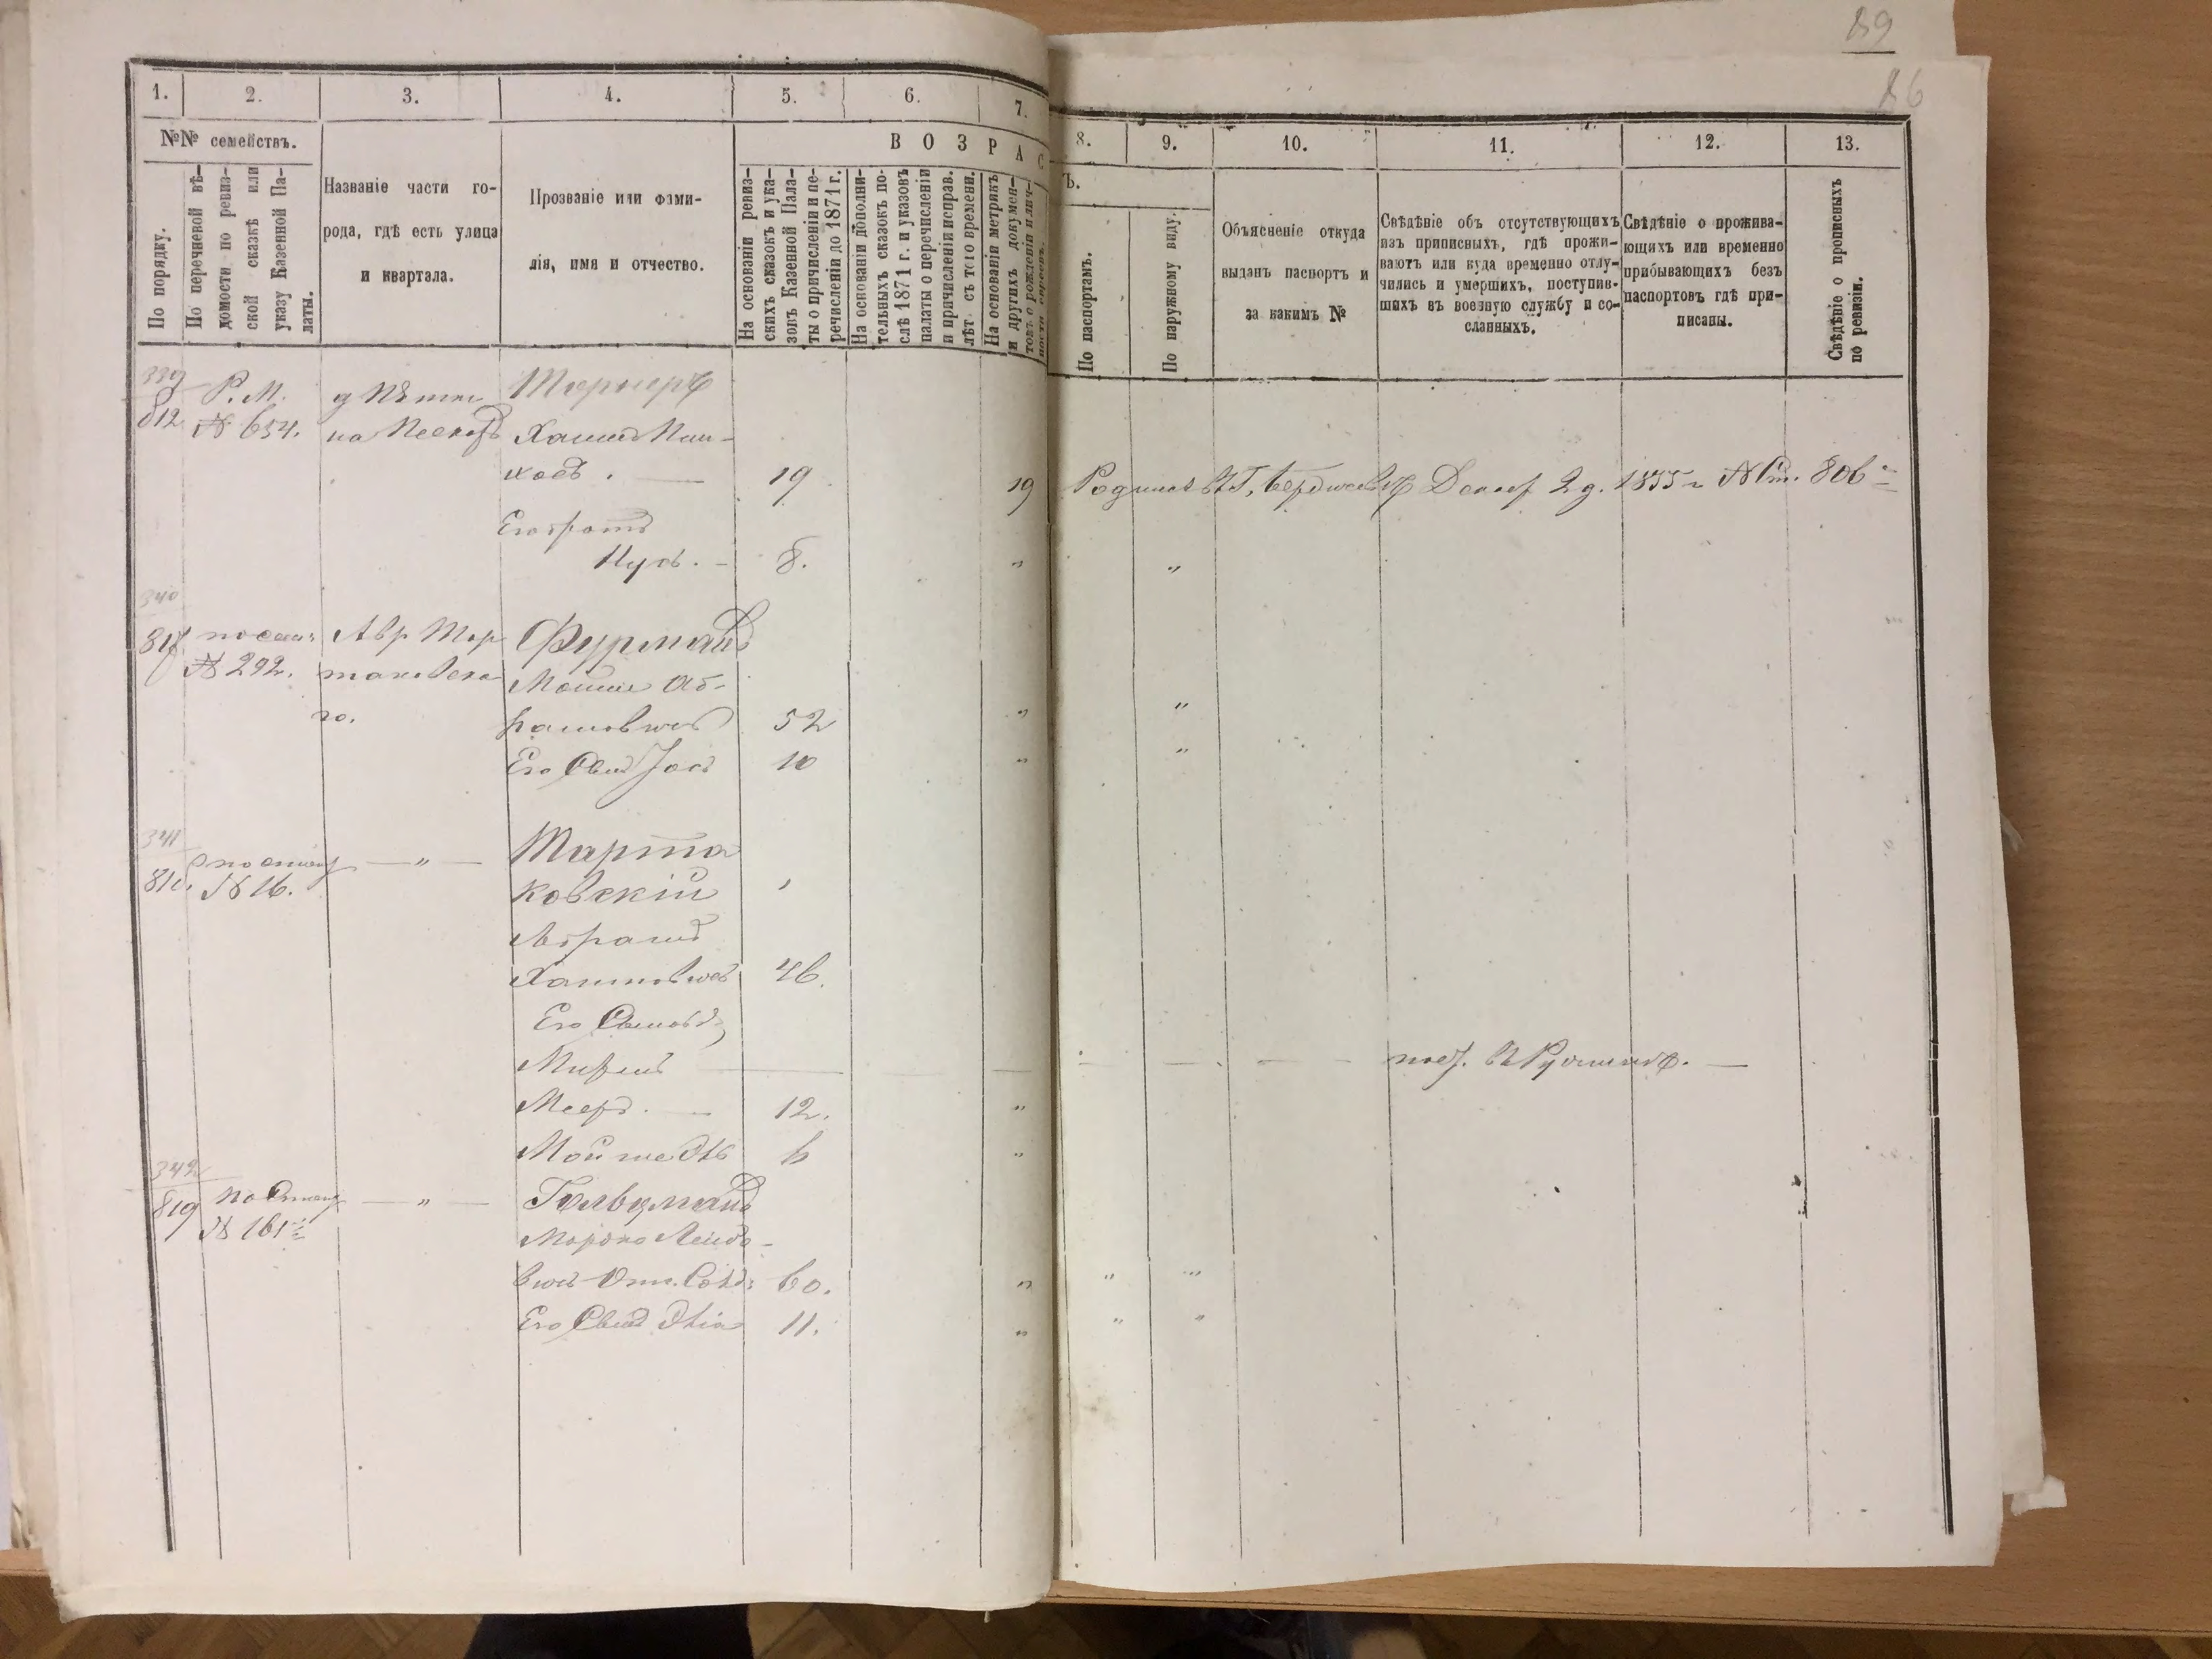 89
86
1. 2. 3. 4. 5. 6. 7. 8. 9. 10. 11. 12. 13.
№№ семействъ.
В О З Р А С
Ъ.
По порядку.
По перечневой вѣ-
домости по ревиз-
ской сказкѣ или
указу Казенной Па-
латы.
Названіе части го-
рода, гдѣ есть улица
и квартала.
Прозваніе или фами-
лія, имя и отчество.
На основаніи ревиз-
скихъ сказокъ и ука-
зовъ Казенной Пала-
ты о причисленіи и пе-
речисленіи до 1871 г.
На основаніи дополни-
тельныхъ сказокъ по-
слѣ 1871 г. и указовъ
палаты о перечисленіи
и причисленіи исправ.
лѣт. съ того времени.
На основаніи метрикъ
и другихъ докумен-
товъ о рожденіи и лич-
ности евреевъ.
По паспортамъ.
По наружному виду.
Объясненіе откуда
выданъ паспортъ и
за какимъ №
Свѣдѣніе объ отсутствующихъ
изъ приписныхъ, гдѣ прожи-
ваютъ или куда временно отлу-
чились и умершихъ, поступив-
шихъ въ военную службу и со-
сланныхъ.
Свѣдѣніе о прожива-
ющихъ или временно
прибывающихъ безъ
паспортовъ гдѣ при-
писаны.
Свѣдѣніе о прописныхъ
по ревизіи.
339
812 Р. М.
№ 654.
Хаимъ Пин-
хасъ. — 19 19
Его братъ
Нусь. - 8. " "
340
№ 292.
Авр Мар
таковска
го.
Фурманъ
Мошко Аб-
рамовичъ 52 " "
Его Сынъ Іось 10 " "
341
— " —
№ 16.
Марта
ковскій
Абрамъ
Хаимовичъ 46.
Его Сыновья,
Мееръ. — 12. "
Мойше 6 "
342
819 — " —
№ 161
Гольцманъ
60. " " "
Его Сынъ 11. " " "